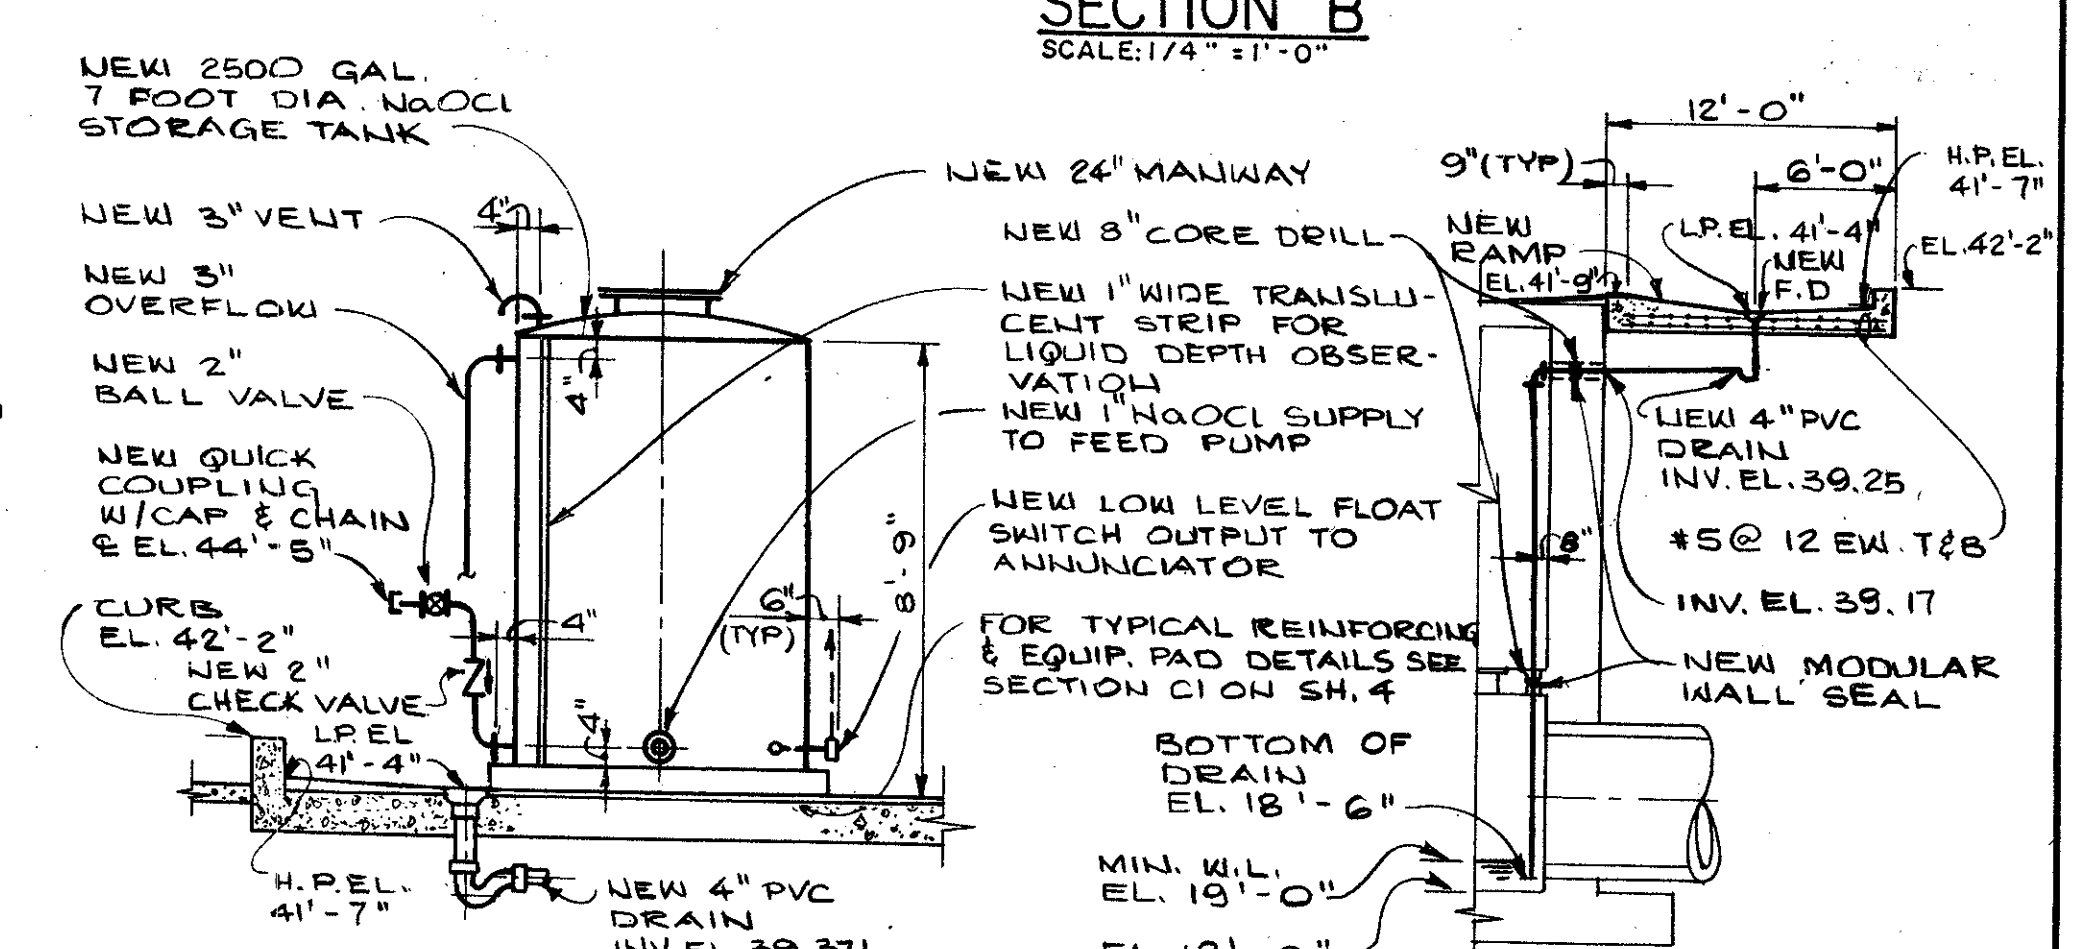 SECTION B
SCALE: 1/4" = 1'-0"
NEW 2500 GAL.
7 FOOT DIA. NaOCl
STORAGE TANK
NEW 3" VENT
NEW 3"
OVERFLOW
NEW 2"
BALL VALVE
NEW QUICK
COUPLING
W/CAP & CHAIN
℄ EL. 44'-5"
CURB
EL. 42'-2"
NEW 2"
CHECK VALVE
L.P. EL
41'-4"
H.P. EL.
41'-7"
NEW 4" PVC
DRAIN
INV. EL. 39.371
4"
4"
4"
4"
6"
(TYP)
8'-9"
NEW 24" MANWAY
NEW 8" CORE DRILL
NEW 1" WIDE TRANSLU-
CENT STRIP FOR
LIQUID DEPTH OBSER-
VATION
NEW 1" NaOCl SUPPLY
TO FEED PUMP
NEW LOW LEVEL FLOAT
SWITCH OUTPUT TO
ANNUNCIATOR
FOR TYPICAL REINFORCING
& EQUIP. PAD DETAILS SEE
SECTION C1 ON SH. 4
BOTTOM OF
DRAIN
EL. 18'-6"
MIN. W.L.
EL. 19'-0"
12'-0"
9" (TYP)
6'-0"
H.P. EL.
41'-7"
NEW
RAMP
EL. 41'-9"
L.P. EL. 41'-4"
NEW
F.D
EL. 42'-2"
NEW 4" PVC
DRAIN
INV. EL. 39.25
#5 @ 12 EW. T&B
8"
INV. EL. 39.17
NEW MODULAR
WALL SEAL